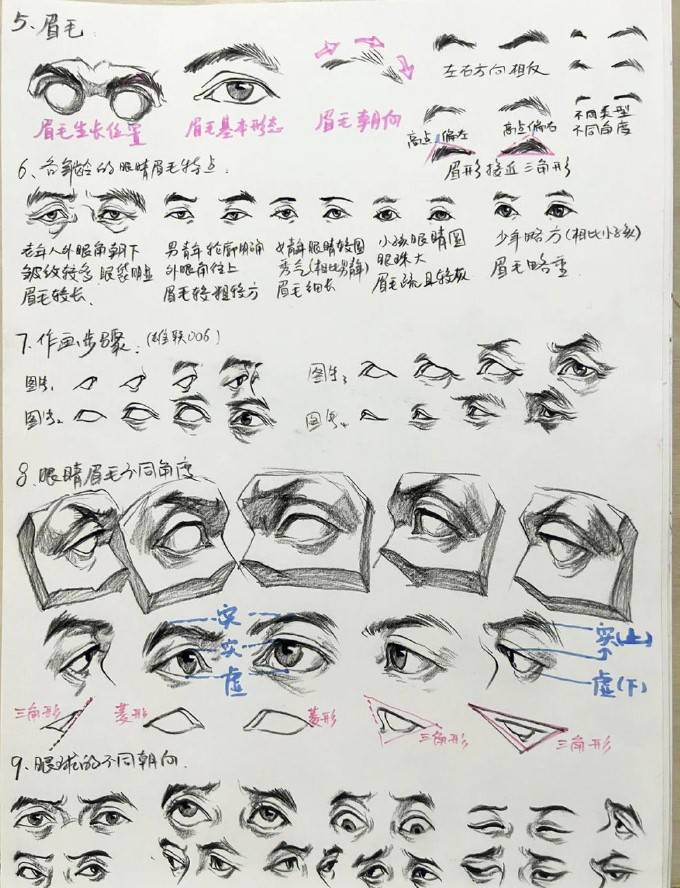 5、眉毛
眉毛生长位置
眉毛基本形态
眉毛朝向
左右方向相反
高点偏左
高点偏右
不同类型
不同角度
眉形接近三角形
6、各年龄的眼睛眉毛特点.
老年人外眼角朝下
皱纹较多 眼袋明显
眉毛较长.
男青年轮廓明确
外眼角往上
眉毛较粗较方
女青年眼睛较圆
秀气(相比男青年)
眉毛细长
小孩眼睛圆
眼珠大
眉毛疏且较粗
少年略方(相比小孩)
眉毛略重
7、作画步骤.(雄联006)
图例1
图例2
图例3
图例4
8、眼睛眉毛不同角度
实
实
虚
实(上)
虚(下)
三角形
菱形
菱形
三角形
三角形
9、眼球的不同朝向.